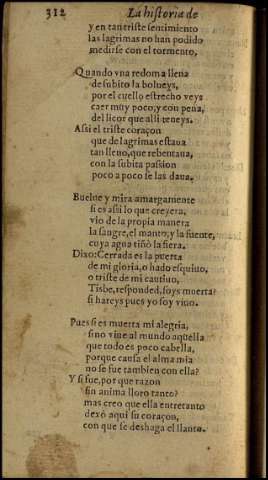 312 La historia de
y en tan triste sentimiento
las lagrimas no han podido
medirse con el tormento.
Quando vna redoma llena
de subito la bolueys,
por el cuello estrecho veys
caer muy poco, y con pena,
del licor que alli teneys.
Assi el triste coraçon
que de lagrimas estaua
tan lleno, que rebentaua,
con la subita passion
poco a poco se las daua.
Buelue y mira amargamente
si es assi lo que creyera,
vio de la propia manera
la sangre, el manto, y la fuente,
cuya agua tiñò la fiera.
Dixo: Cerrada es la puerta
de mi gloria, o hado esquiuo,
o triste de mi cautiuo,
Tisbe, responded, soys muerta?
si hareys pues yo soy viuo.
Pues si es muerta mi alegria,
si no viue al mundo aquella
que todo es poco cabella,
porque causa el alma mia
no se fue tambien con ella?
Y si fue, por que razon
sin anima lloro tanto?
mas creo que ella entretanto
dexò aqui su coraçon,
con que se deshaga el llanto.